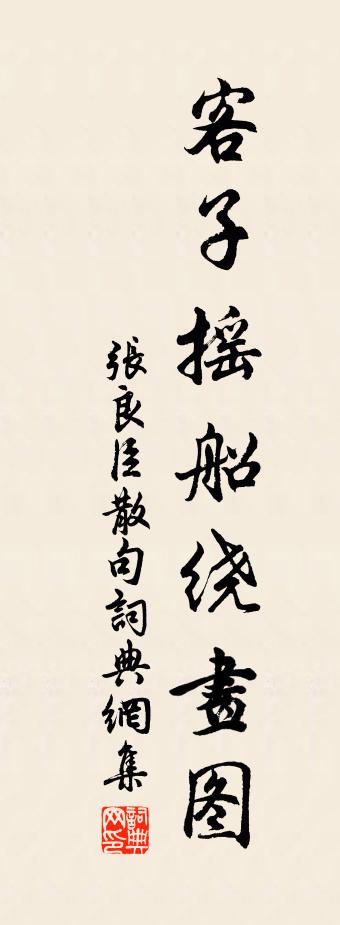 客子摇船绕畫图
張良臣散句詞典網集
詞典网印